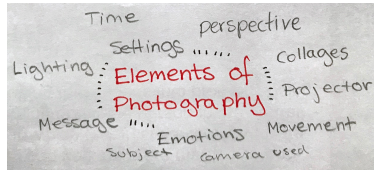 Time
perspective
Settings
Collages
Lighting
Elements of
Photography
Projector
Message
Emotions
Movement
Subject
Camera used